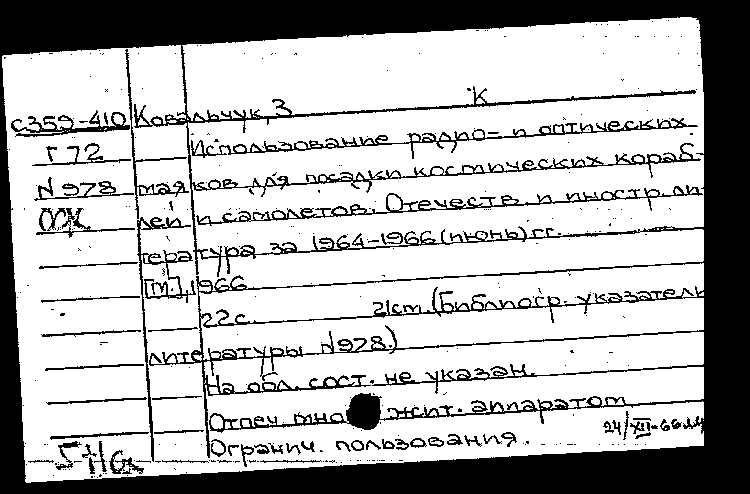 К
с359-410 Ковальчук, З
Г 72 Использование радио- и оптических
N 978 маяков для посадки космических кораб-
ООЖ лей и самолетов. Отечеств. и иностр. ли-
тература за 1964-1966 (июнь) гг.
[М.], 1966
22с. 21см. (Библиогр. указатель
литературы N978.)
На обл. сост. не указан.
Отпеч. множит. аппаратом
Огранич. пользования.
24/XII-66